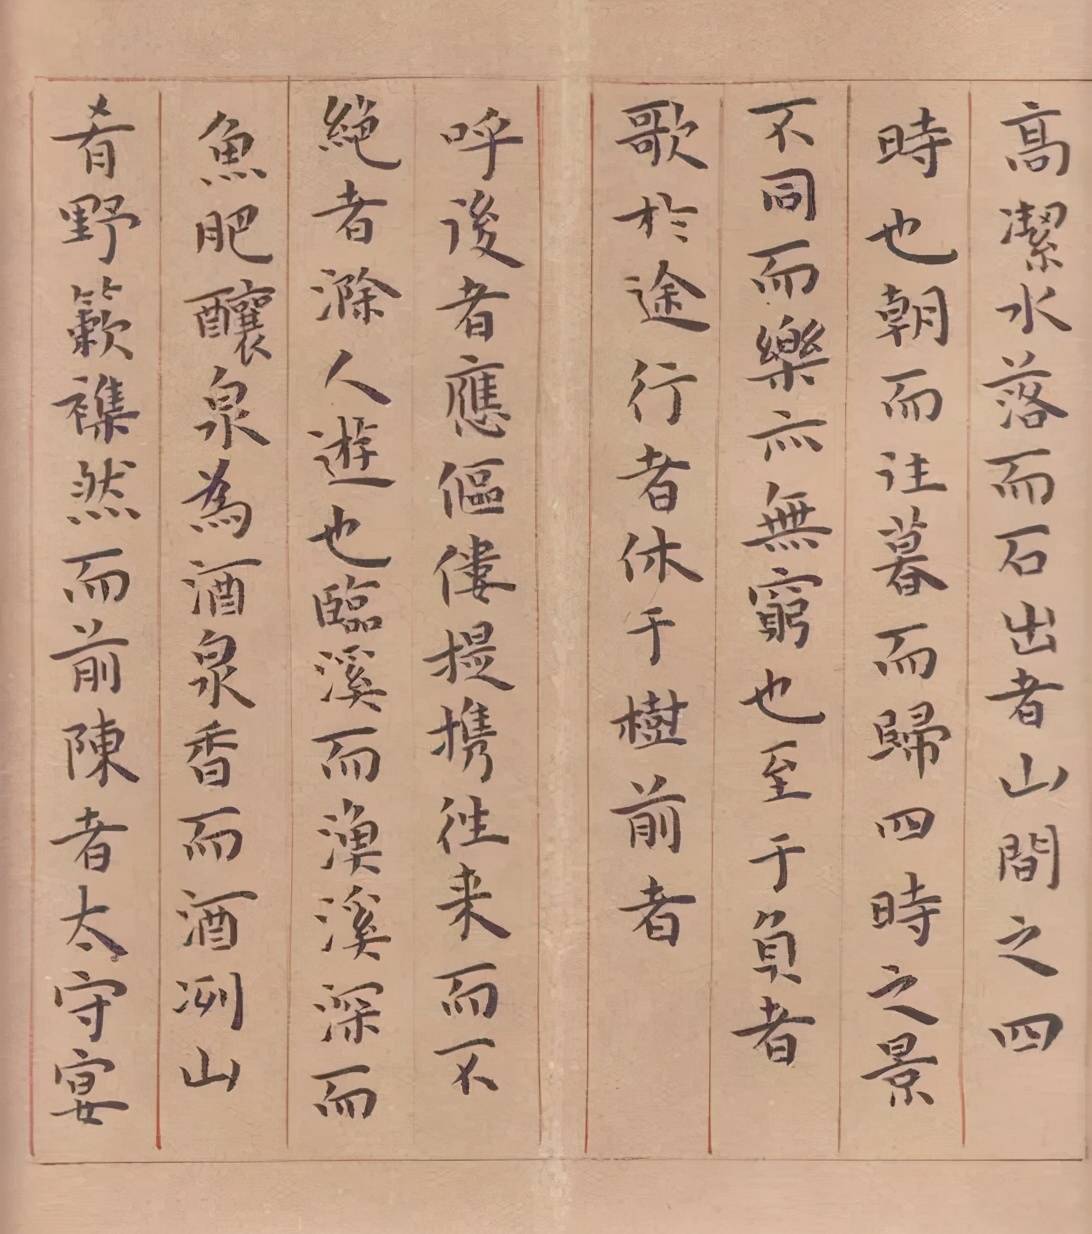 高潔水落而石出者山間之四
時也朝而往暮而歸四時之景
不同而樂亦無窮也至于負者
歌於途行者休于樹前者
呼後者應傴僂提攜往来而不
絶者滁人遊也臨溪而漁溪深而
魚肥釀泉為酒泉香而酒洌山
肴野簌襍然而前陳者太守宴